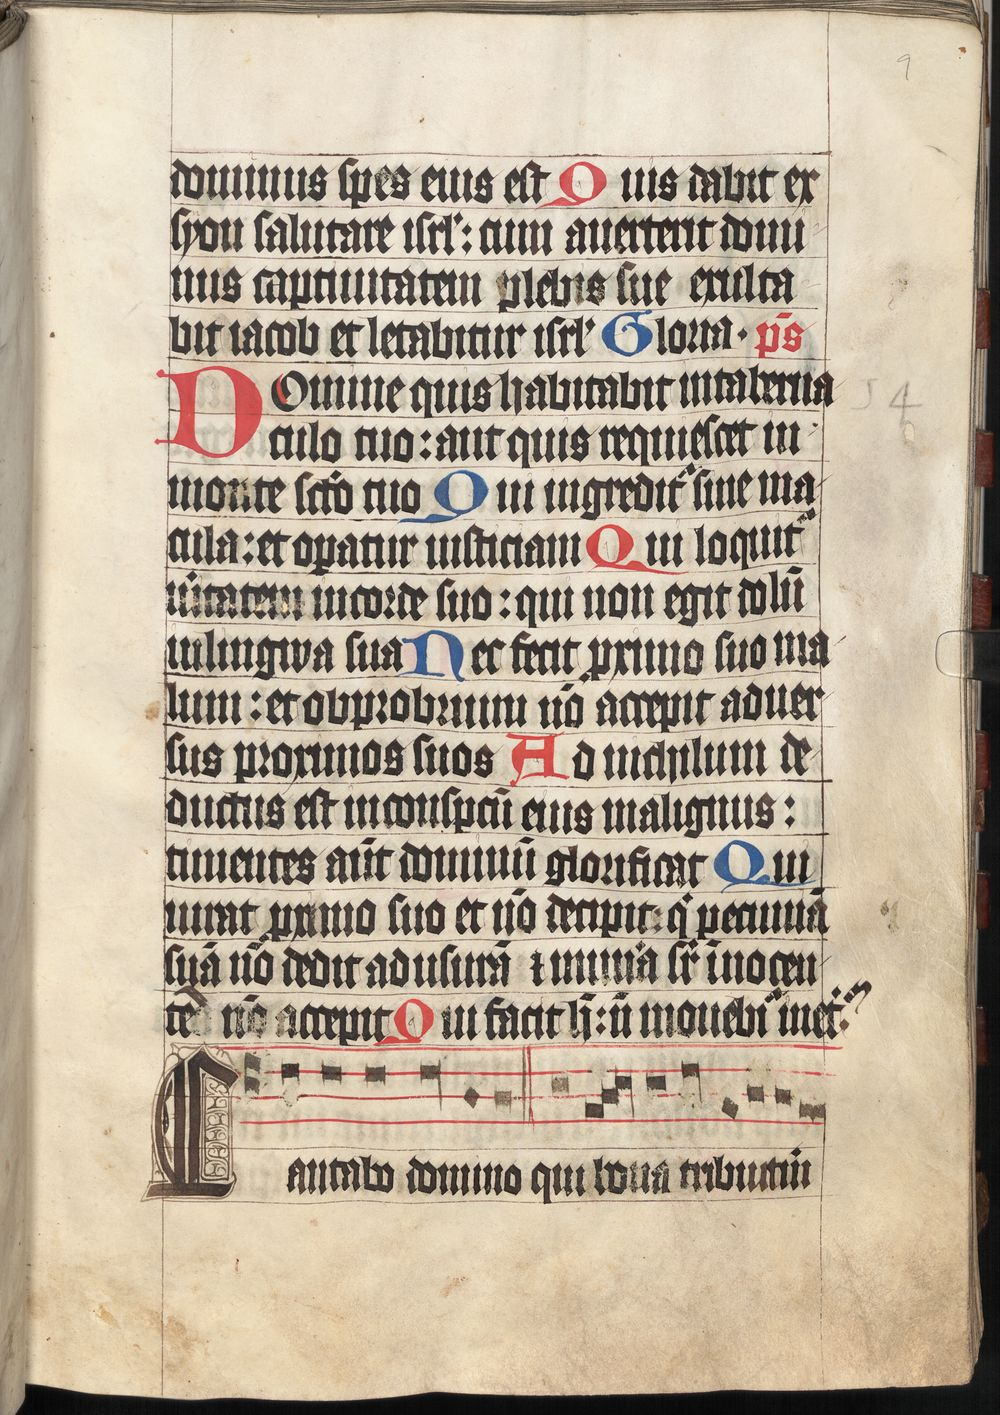 9
dominus spes eius est Quis dabit ex
syon salutare isrl': cum auerterit domi
nus captiuitatem plebis sue exulta
bit iacob et letabitur isrl' Gloria. p̄s
DOmine quis habitabit intaberna
culo tuo: aut quis requiescet in
monte scō tuo Qui ingredit᷑ sine ma
cula: et opatur iusticiam Qui loquit᷑
u̓itatem incorde suo: qui non egit dolū
inlingwa sua Nec fecit pximo suo ma
lum: et obprobrium nō accepit aduer
sus proximos suos Ad nichilum de
ductus est inconspectū eius malignus:
timentes aūt dominū glorificat Qui
iurat pximo suo et nō decipit: q̓ pecuniā
suā nō dedit adusurā ⁊ mun̓a sr̄ īnocen
tē nō accepit Qui facit h̄: n̄ mouebi᷑ inet̓:
Cantabo domino qui bona tribuit m̄
54